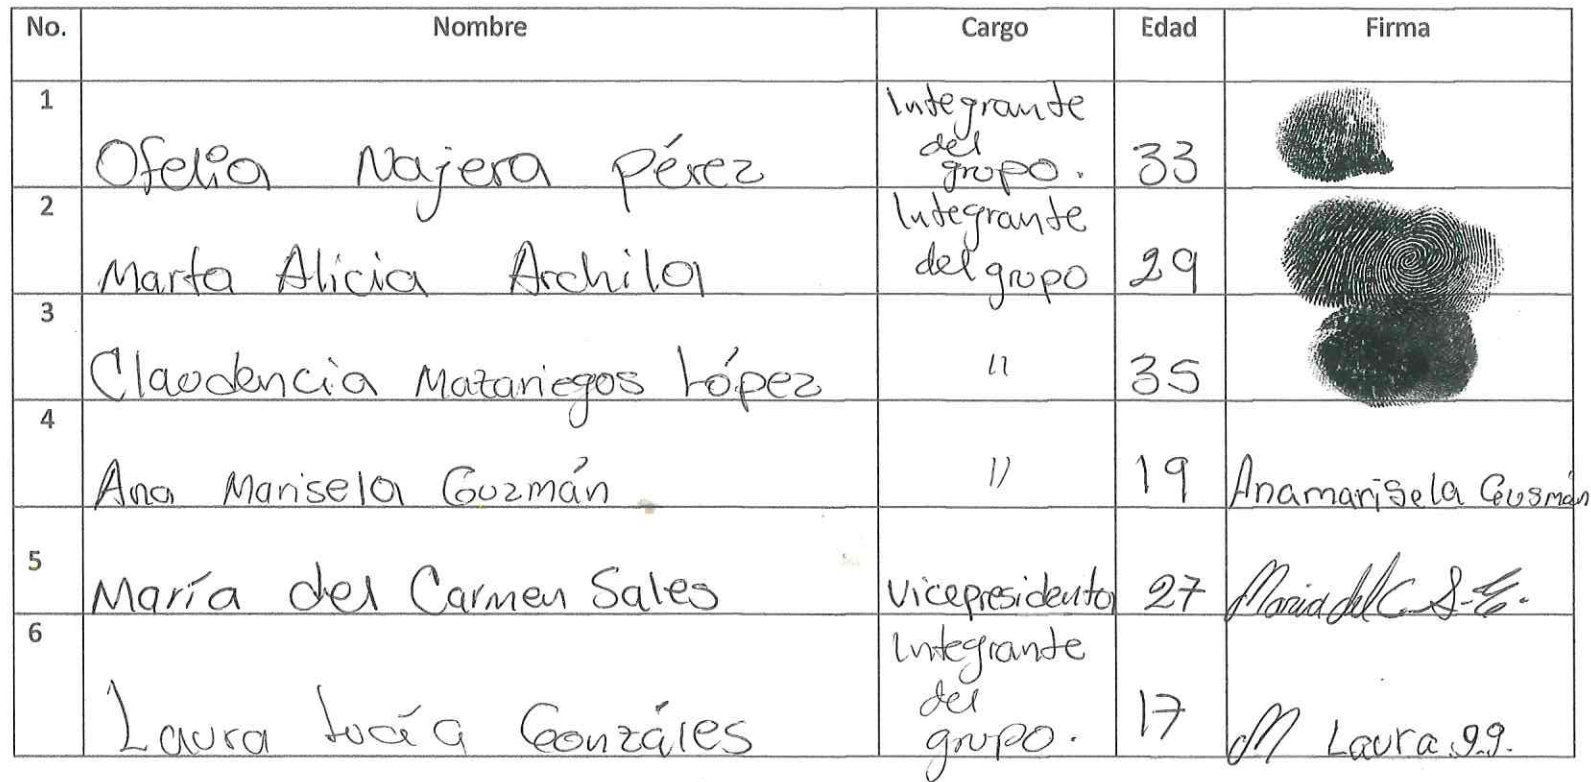 No. Nombre Cargo Edad Firma
1 Ofelia Najera Pérez Integrante del grupo. 33
2 Marta Alicia Archila Integrante del grupo 29
3 Claudencia Mazariegos López " 35
4 Ana Marisela Guzmán " 19 Anamarisela Gusmán
5 María del Carmen Sales Vicepresidenta 27 Maria del C. S.
6 Laura Lucía Gonzáles Integrante del grupo. 17 M Laura g.g.